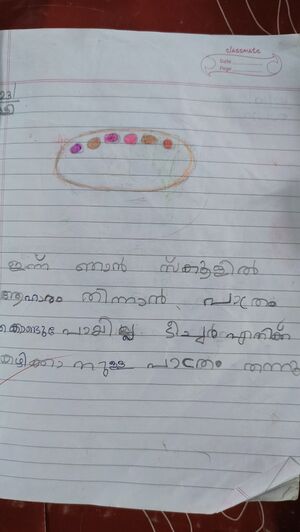 classmate
Date
Page
23/
ഇന്ന് ഞാൻ സ്കൂളിൽ
ആഹാരം തിന്നാൻ പാത്രം
കൊണ്ടുപോയില്ല. ടീച്ചർ എനിക്ക്
കഴിക്കാനുള്ള പാത്രം തന്നു